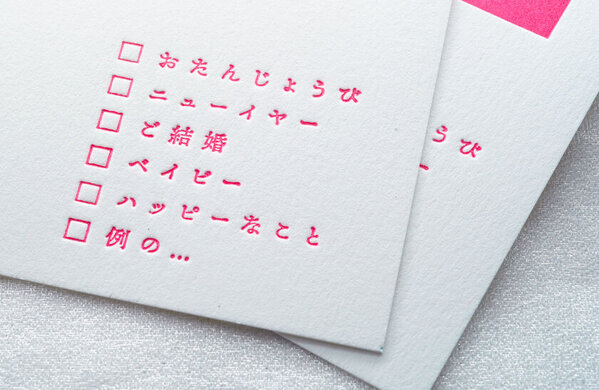 □ おたんじょうび
□ ニューイヤー
□ ご結婚
□ ベイビー
□ ハッピーなこと
□ 例の…
ょうび
ー